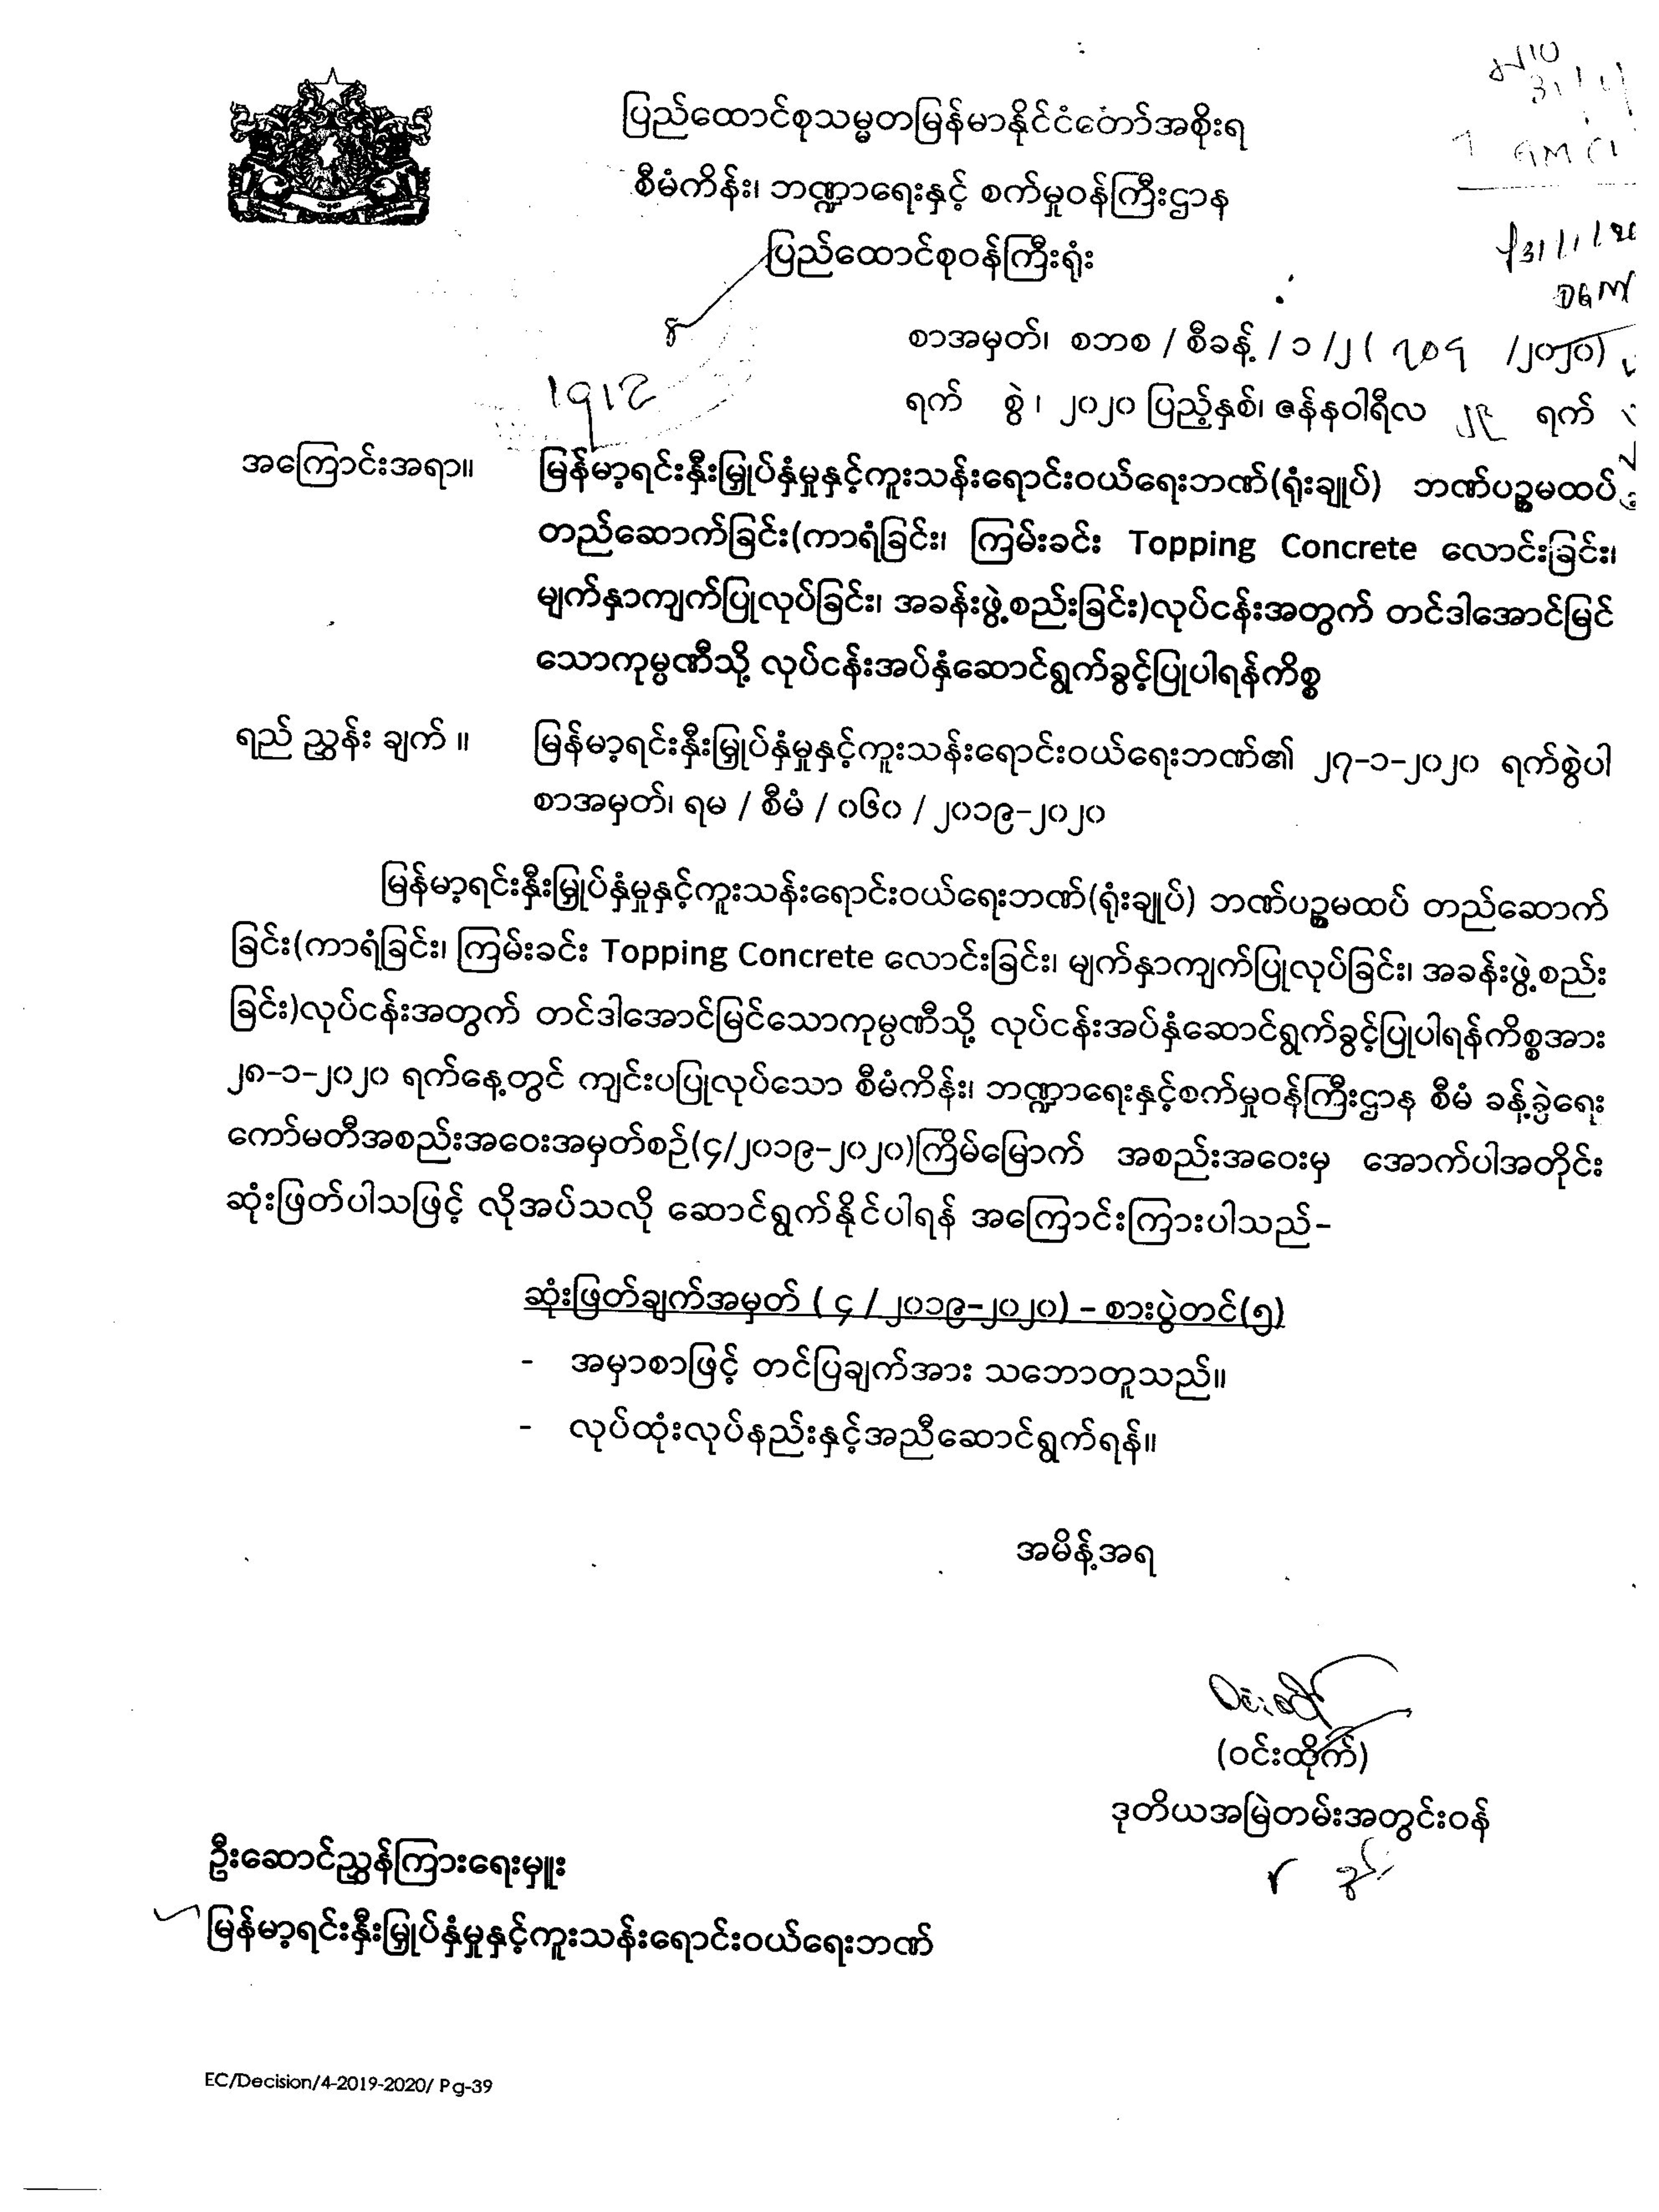 ပြည်ထောင်စုသမ္မတမြန်မာနိုင်ငံတော်အစိုးရ
စီမံကိန်း၊ ဘဏ္ဍာရေးနှင့် စက်မှုဝန်ကြီးဌာန
ပြည်ထောင်စုဝန်ကြီးရုံး
စာအမှတ်၊ စဘစ / စီခန့် / ၁ /၂ ( /၂၀၂၀)
ရက် စွဲ ၊ ၂၀၂၀ ပြည့်နှစ်၊ ဇန်နဝါရီလ ၂၉ ရက်
အကြောင်းအရာ။ မြန်မာ့ရင်းနှီးမြှုပ်နှံမှုနှင့်ကူးသန်းရောင်းဝယ်ရေးဘဏ်(ရုံးချုပ်) ဘဏ်ပဉ္စမထပ်
တည်ဆောက်ခြင်း(ကာရံခြင်း၊ ကြမ်းခင်း Topping Concrete လောင်းခြင်း၊
မျက်နှာကျက်ပြုလုပ်ခြင်း၊ အခန်းဖွဲ့စည်းခြင်း)လုပ်ငန်းအတွက် တင်ဒါအောင်မြင်
သောကုမ္ပဏီသို့ လုပ်ငန်းအပ်နှံဆောင်ရွက်ခွင့်ပြုပါရန်ကိစ္စ
ရည် ညွှန်း ချက် ။ မြန်မာ့ရင်းနှီးမြှုပ်နှံမှုနှင့်ကူးသန်းရောင်းဝယ်ရေးဘဏ်၏ ၂၇-၁-၂၀၂၀ ရက်စွဲပါ
စာအမှတ်၊ ရမ / စီမံ / ၀၆၀ / ၂၀၁၉-၂၀၂၀
မြန်မာ့ရင်းနှီးမြှုပ်နှံမှုနှင့်ကူးသန်းရောင်းဝယ်ရေးဘဏ်(ရုံးချုပ်) ဘဏ်ပဉ္စမထပ် တည်ဆောက်
ခြင်း(ကာရံခြင်း၊ ကြမ်းခင်း Topping Concrete လောင်းခြင်း၊ မျက်နှာကျက်ပြုလုပ်ခြင်း၊ အခန်းဖွဲ့စည်း
ခြင်း)လုပ်ငန်းအတွက် တင်ဒါအောင်မြင်သောကုမ္ပဏီသို့ လုပ်ငန်းအပ်နှံဆောင်ရွက်ခွင့်ပြုပါရန်ကိစ္စအား
၂၈-၁-၂၀၂၀ ရက်နေ့တွင် ကျင်းပပြုလုပ်သော စီမံကိန်း၊ ဘဏ္ဍာရေးနှင့်စက်မှုဝန်ကြီးဌာန စီမံ ခန့်ခွဲရေး
ကော်မတီအစည်းအဝေးအမှတ်စဉ်(၄/၂၀၁၉-၂၀၂၀)ကြိမ်မြောက် အစည်းအဝေးမှ အောက်ပါအတိုင်း
ဆုံးဖြတ်ပါသဖြင့် လိုအပ်သလို ဆောင်ရွက်နိုင်ပါရန် အကြောင်းကြားပါသည်-
ဆုံးဖြတ်ချက်အမှတ် ( ၄ / ၂၀၁၉-၂၀၂၀) - စားပွဲတင်(၅)
- အမှာစာဖြင့် တင်ပြချက်အား သဘောတူသည်။
- လုပ်ထုံးလုပ်နည်းနှင့်အညီဆောင်ရွက်ရန်။
အမိန့်အရ
(ဝင်းထိုက်)
ဒုတိယအမြဲတမ်းအတွင်းဝန်
ဦးဆောင်ညွှန်ကြားရေးမှူး
မြန်မာ့ရင်းနှီးမြှုပ်နှံမှုနှင့်ကူးသန်းရောင်းဝယ်ရေးဘဏ်
EC/Decision/4-2019-2020/ Pg-39